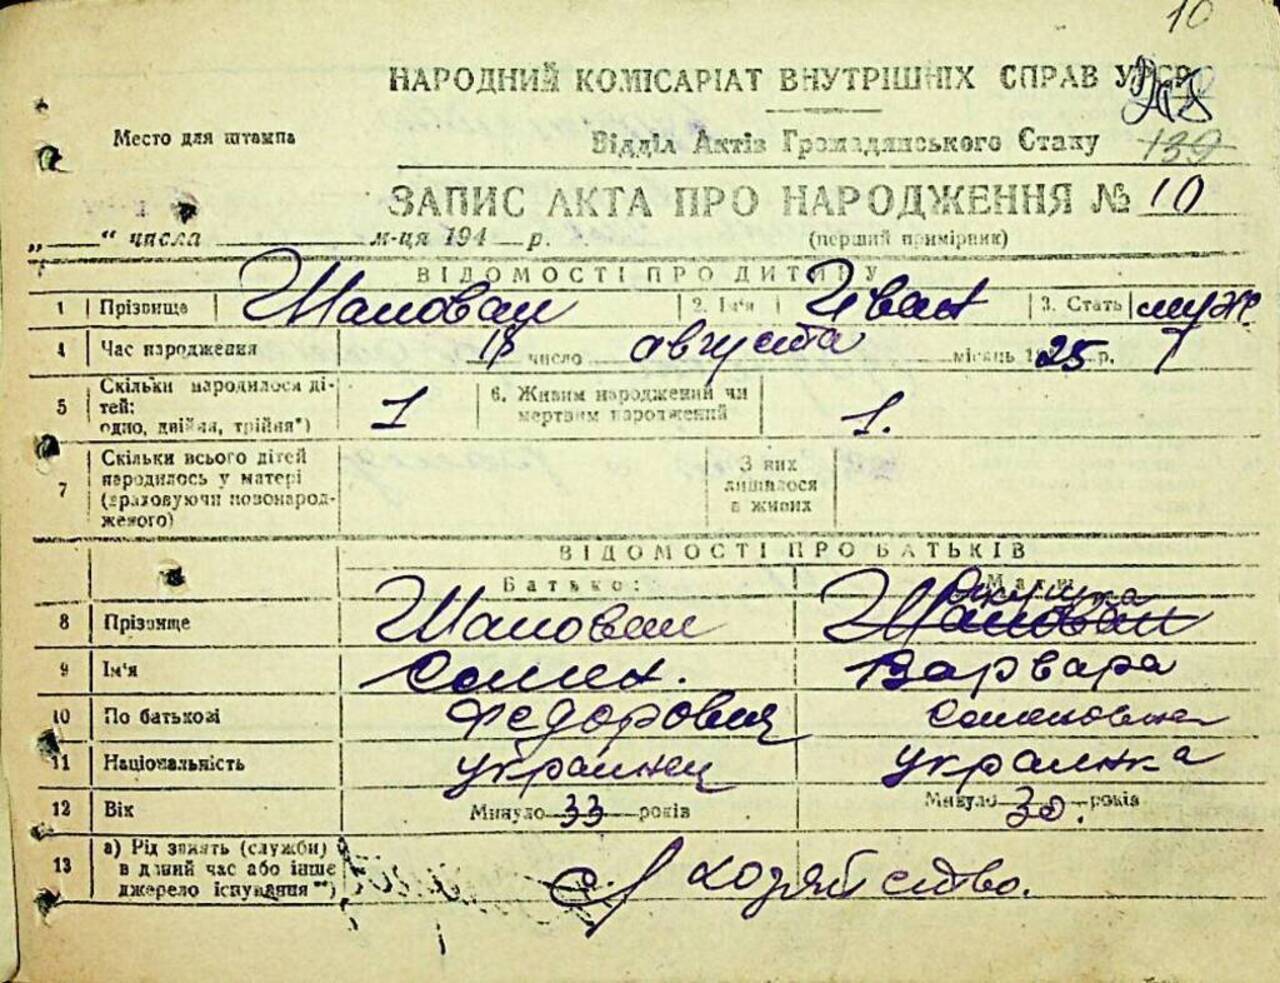 10
НАРОДНИЙ КОМІСАРІАТ ВНУТРІШНІХ СПРАВ УРСР
Место для штампа
Відділ Актів Громадянського Стану
139
ЗАПИС АКТА ПРО НАРОДЖЕННЯ № 10
„ “ числа м-ця 194 р. (перший примірник)
ВІДОМОСТІ ПРО ДИТИНУ
1 Прізвище Шаповал 2. Ім'я Іван 3. Стать муж.
4 Час народження 18 число августа місяць 1925 р.
5 Скільки народилося ді-
тей:
одно, двійня, трійня*) 1 6. Живим народжений чи
мертвим народжений 1.
7 Скільки всього дітей
народилось у матері
(враховуючи новонарод-
женого) З них
лишилося
в живих
ВІДОМОСТІ ПРО БАТЬКІВ
Батько: Мати:
8 Прізвище Шаповал Шаповал
9 Ім'я Семен. Варвара
10 По батькові Федорович Семеновна
11 Національність украинец украинка
12 Вік Минуло 33 років Минуло 30. років
13 а) Рід занять (службы)
в даний час або інше
джерело існування**) с/хозяйство.